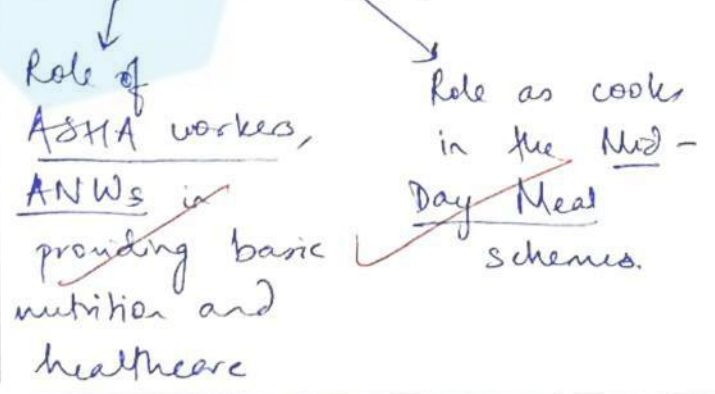 Role of
ASHA workers,
ANWs in
providing basic
nutrition and
healthcare
Role as cooks
in the Mid-
Day Meal
schemes.